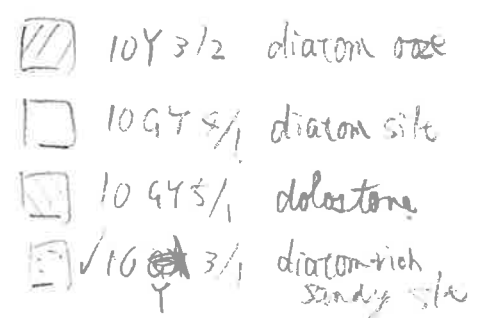 10Y 3/2 diatom ooze
10GY 4/1 diatom silt
10GY 5/1 dolostone
✓10Y 3/1 diatom-rich
sandy silt